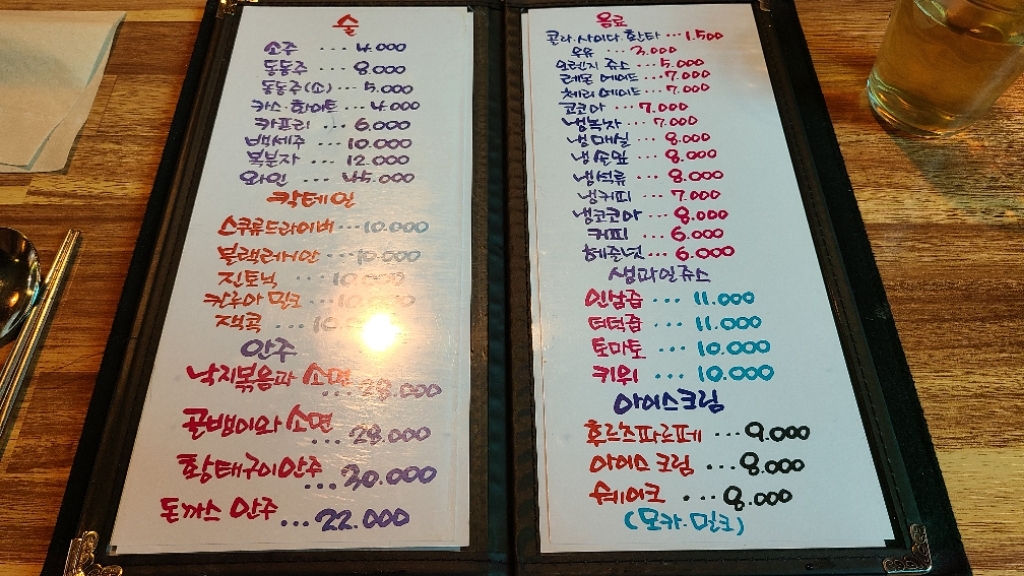 술
소주 ... 4.000
동동주 ... 8.000
동동주(소) ... 5.000
카스.하이트 ... 4.000
카프리 ... 6.000
백세주 ... 10.000
복분자 ... 12.000
와인 ... 45.000
칵테일
스쿠류드라이버 ... 10.000
블랙러시안 ... 10.000
진토닉 ... 10.000
칸루아 밀크 ... 10.000
잭콕 ...
안주
낙지볶음과 소면 ... 28.000
골뱅이와 소면 ... 28.000
황태구이안주 ... 30.000
돈까스 안주 ... 22.000
음료
콜라.사이다.환타 ... 1.500
우유 ... 3.000
오렌지 쥬스 ... 5.000
레몬 에이드 ... 7.000
체리 에이드 ... 7.000
코코아 ... 7.000
냉녹차 ... 7.000
냉매실 ... 8.000
냉솔잎 ... 8.000
냉석류 ... 8.000
냉커피 ... 7.000
냉코코아 ... 8.000
커피 ... 6.000
헤즐넛 ... 6.000
생과일쥬스
인삼즙 ... 11.000
더덕즙 ... 11.000
토마토 ... 10.000
키위 ... 10.000
아이스크림
후르츠파르페 ... 9.000
아이스크림 ... 8.000
쉐이크 ... 8.000
(모카.밀크)